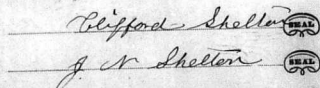 Clifford Shelton SEAL
J. N Shelton SEAL